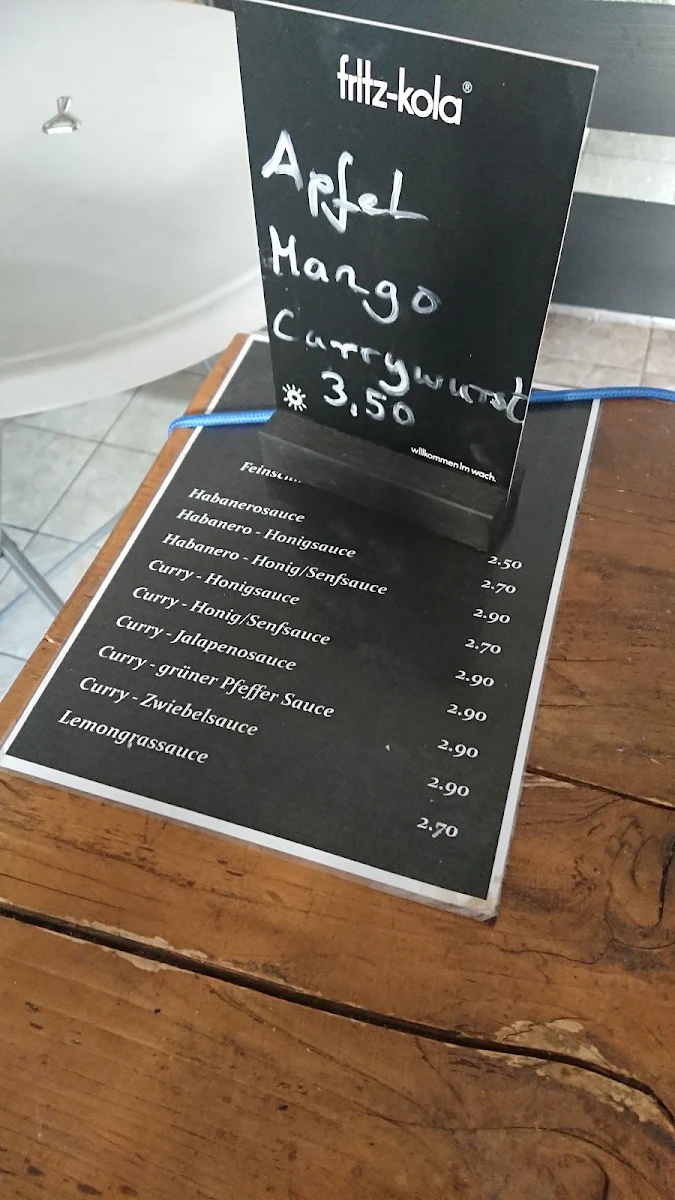 fritz-kola®
Apfel
Mango
Currywurst
3,50
willkommen im wach.
Habanerosauce 2.50
Habanero - Honigsauce 2.70
Habanero - Honig/Senfsauce 2.90
Curry - Honigsauce 2.70
Curry - Honig/Senfsauce 2.90
Curry - Jalapenosauce 2.90
Curry - grüner Pfeffer Sauce 2.90
Curry - Zwiebelsauce 2.90
Lemongrassauce 2.70